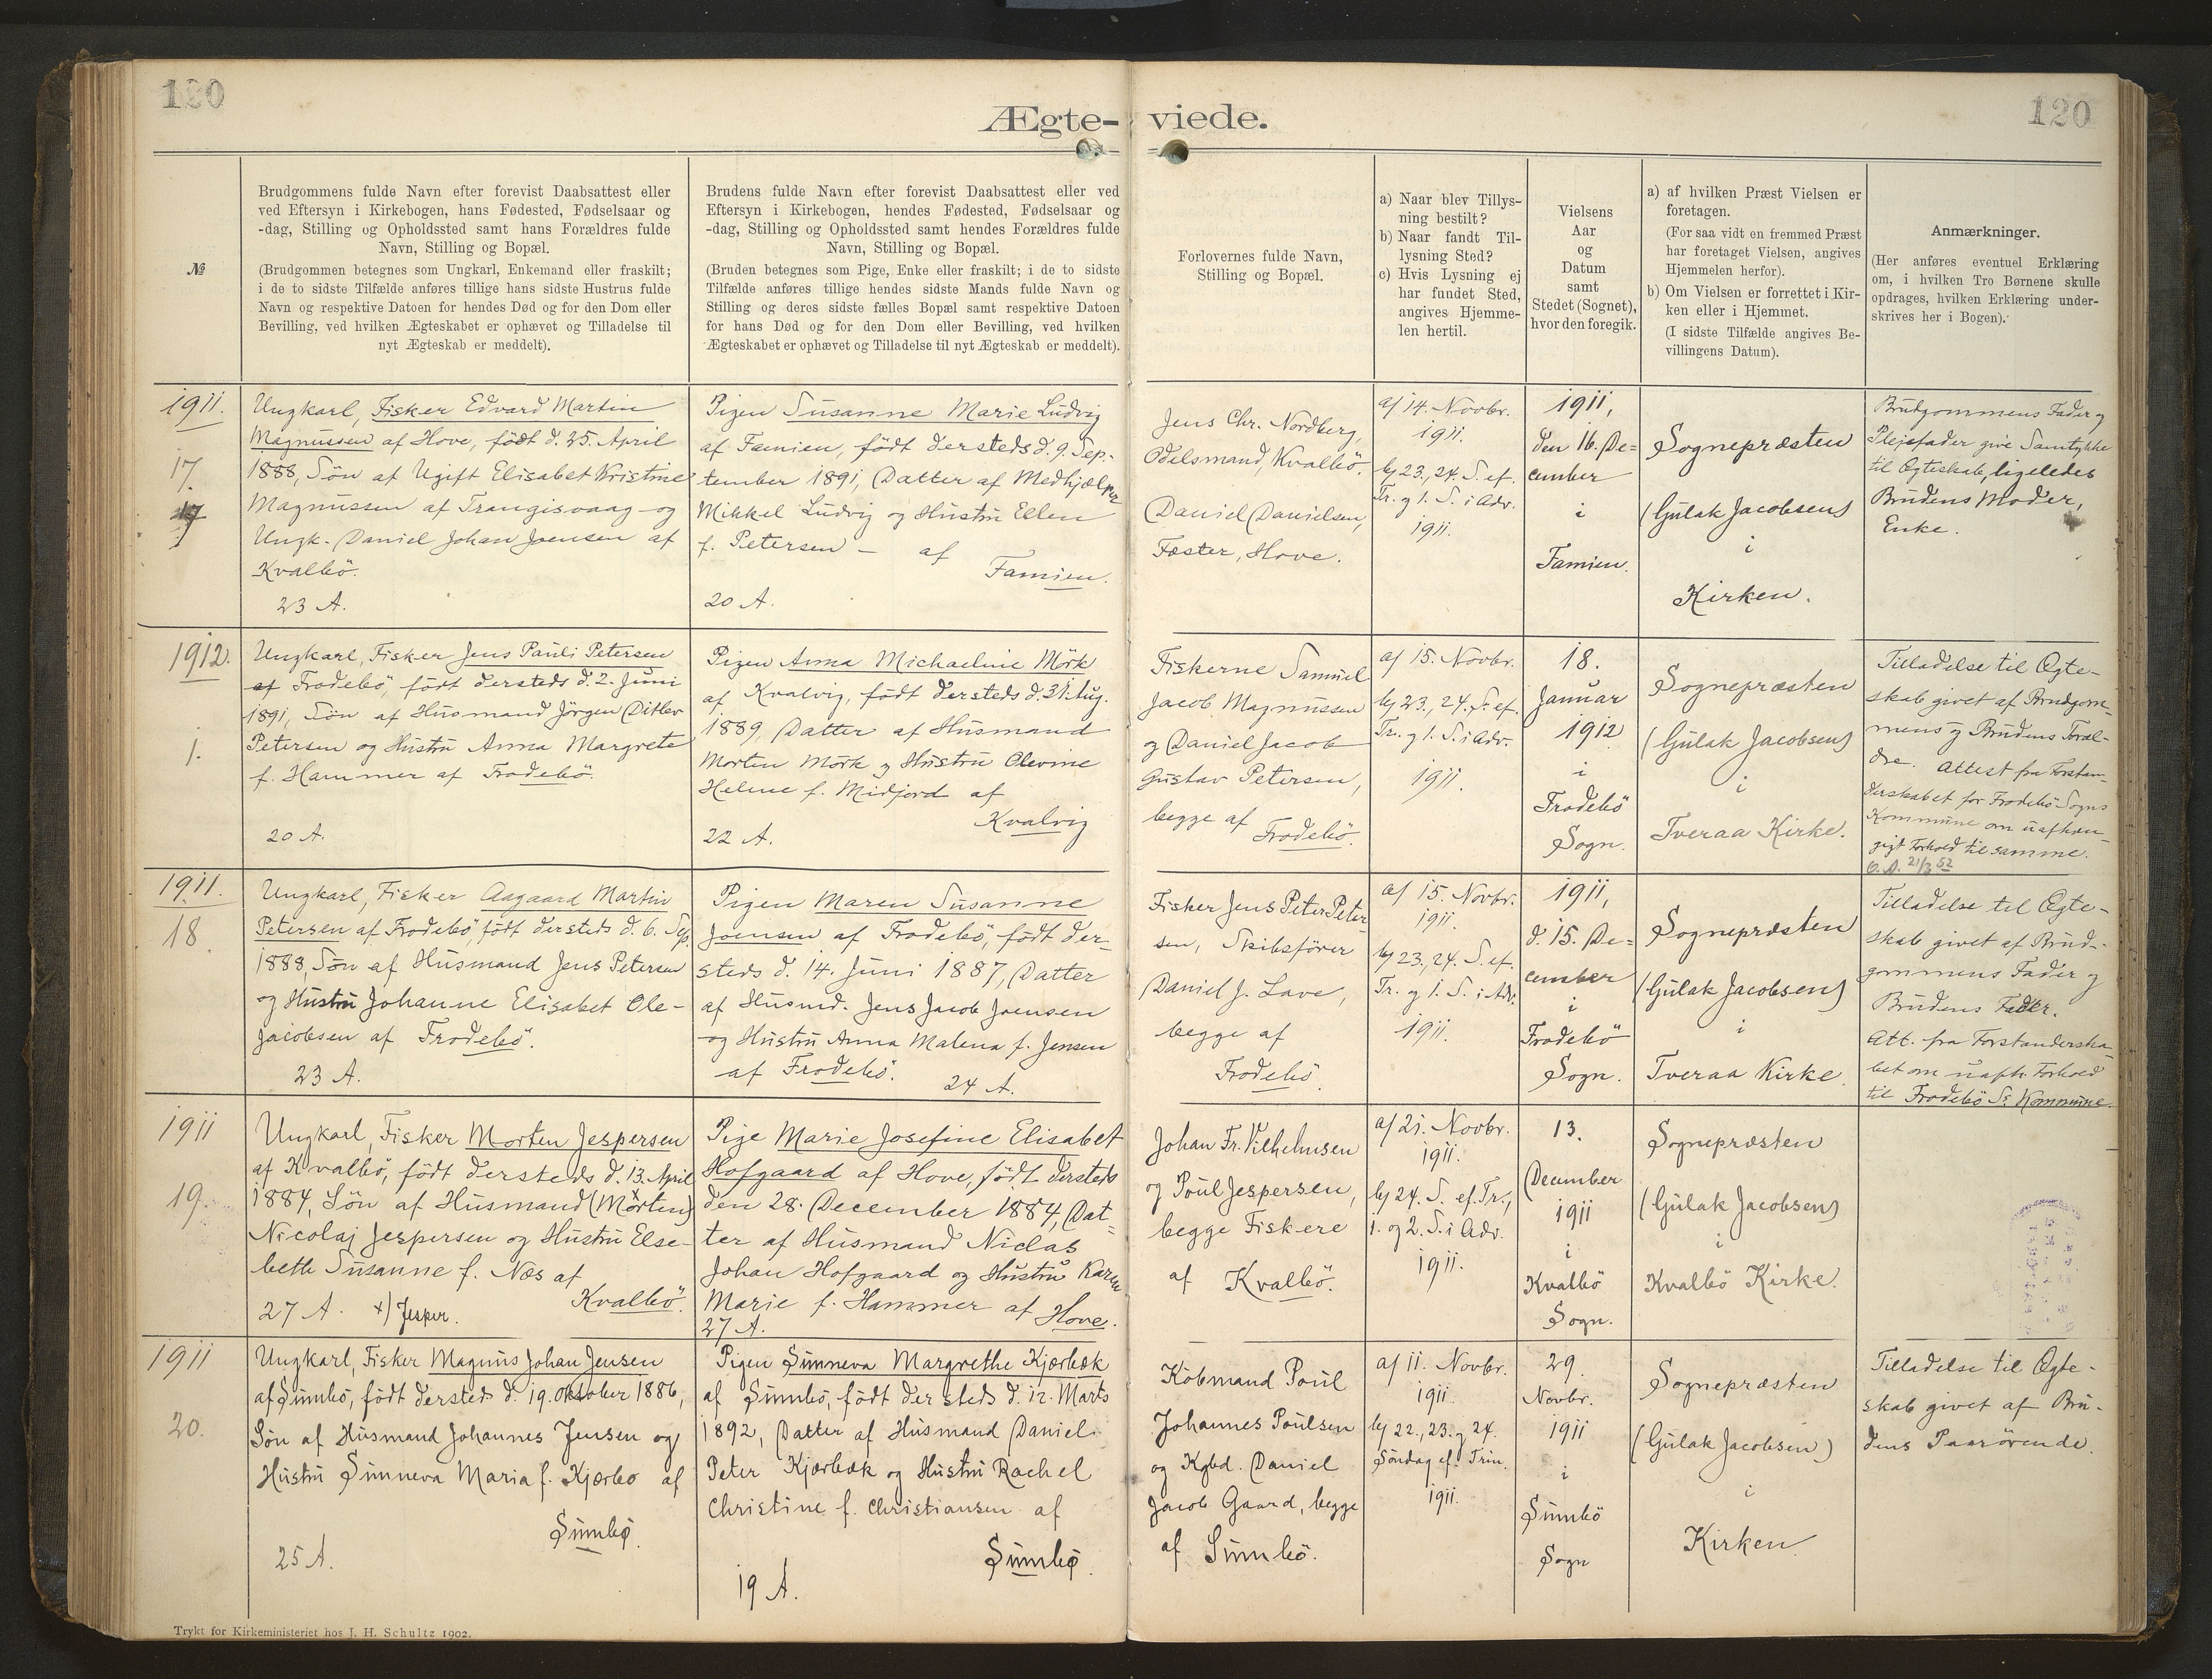 120
120
Ægte-
viede.
№
Brudgommens fulde Navn efter forevist Daabsattest eller
ved Eftersyn i Kirkebogen, hans Fødested, Fødselsaar og
-dag, Stilling og Opholdssted samt hans Forældres fulde
Navn, Stilling og Bopæl.
(Brudgommen betegnes som Ungkarl, Enkemand eller fraskilt;
i de to sidste Tilfælde anføres tillige hans sidste Hustrus fulde
Navn og respektive Datoen for hendes Død og for den Dom eller
Bevilling, ved hvilken Ægteskabet er ophævet og Tilladelse til
nyt Ægteskab er meddelt).
Brudens fulde Navn efter forevist Daabsattest eller ved
Eftersyn i Kirkebogen, hendes Fødested, Fødselsaar og
-dag, Stilling og Opholdssted samt hendes Forældres fulde
Navn, Stilling og Bopæl.
(Bruden betegnes som Pige, Enke eller fraskilt; i de to sidste
Tilfælde anføres tillige hendes sidste Mands fulde Navn og
Stilling og deres sidste fælles Bopæl samt respektive Datoen
for hans Død og for den Dom eller Bevilling, ved hvilken
Ægteskabet er ophævet og Tilladelse til nyt Ægteskab er meddelt).
Forlovernes fulde Navn,
Stilling og Bopæl.
a) Naar blev Tillys-
ning bestilt?
b) Naar fandt Til-
lysning Sted?
c) Hvis Lysning ej
har fundet Sted,
angives Hjemme-
len hertil.
Vielsens
Aar
og
Datum
samt
Stedet (Sognet),
hvor den foregik.
a) af hvilken Præst Vielsen er
foretagen.
(For saa vidt en fremmed Præst
har foretaget Vielsen, angives
Hjemmelen herfor).
b) Om Vielsen er forrettet i Kir-
ken eller i Hjemmet.
(I sidste Tilfælde angives Be-
villingens Datum).
Anmærkninger.
(Her anføres eventuel Erklæring
om, i hvilken Tro Børnene skulle
opdrages, hvilken Erklæring under-
skrives her i Bogen).
1911.
17.
17
Ungkarl, Fisker Edvard Martin
Magnussen af Hove, født d. 25. April
1888, Søn af Ugift Elisabet Kristine
Magnussen af Trangisvaag og
Ungk. Daniel Johan Joensen af
Kvalbö.
23 A.
Pigen Susanne Marie Ludvig
af Famien, født dersteds d. 9. Sep-
tember 1891, Datter af Medhjælper
Mikkel Ludvig og Hustru Ellen
f. Petersen – af
Famien.
20 A.
Jens Chr. Nordberg,
Odelsmand, Kvalbö.
Daniel Danielsen,
Fæster, Hove.
a/ 14. Novbr.
1911.
b/ 23., 24. S. ef.
Tr. og 1. S. i Adv.
1911.
1911,
den 16. De-
cember
i
Famien.
Sognepræsten
(Gulak Jacobsen)
i
Kirken.
Brudgommens Fader og
Plejefader give Samtykke
til Ægteskab, ligeledes
Brudens Moder,
Enke.
1912.
1.
Ungkarl, Fisker Jens Pauli Petersen
af Frodebö, født dersteds d. 2. Juni
1891, Søn af Husmand Jörgen Ditlev
Petersen og Hustru Anna Margrete
f. Hammer af Frodebö.
20 A.
Pigen Anna Michaeline Mörk
af Kvalvig, født dersteds d. 31. Aug.
1889, Datter af Husmand
Morten Mörk og Hustru Olevine
Helene f. Midjord af
Kvalvig
22 A.
Fiskerne Samuel
Jacob Magnussen
og Daniel Jacob
Gustav Petersen,
begge af
Frodebö.
a/ 15. Novbr.
b/ 23., 24. S. ef.
Tr. og 1. S. i Adv.
1911.
18.
Januar
1912
i
Frodebö
Sogn.
Sognepræsten
(Gulak Jacobsen)
i
Tveraa Kirke.
Tilladelse til Ægte-
skab givet af Brudgom-
mens og Brudens Foræl-
dre. Attest fra Forstan-
derskabet for Frodebö Sogns
Kommune om uafhæn-
gigt Forhold til samme.
21/3 52
1911.
18.
Ungkarl, Fisker Aagaard Martin
Petersen af Frodebö, født dersteds d. 6. Sep.
1888, Søn af Husmand Jens Petersen
og Hustru Johanne Elisabet Ole-
Jacobsen af Frodebö.
23 A.
Pigen Maren Susanne
Joensen af Frodebö, født der-
steds d. 14. Juni 1887, Datter
af Husmd. Jens Jacob Joensen
og Hustru Anna Malena f. Jensen
af Frodebö. 24 A.
Fisker Jens Peter Peter-
sen, Skibsfører
Daniel J. Lave,
begge af
Frodebö.
a/ 15. Novbr.
1911.
b/ 23., 24. S. ef.
Tr. og 1. S. i Adv.
1911.
1911,
d. 15. De-
cember
i
Frodebö
Sogn.
Sognepræsten
(Gulak Jacobsen)
i
Tveraa Kirke.
Tilladelse til Ægte-
skab givet af Brud-
gommens Fader og
Brudens Fader.
Att. fra Forstanderska-
bet om uafh. Forhold
til Frodebö S: Kommune.
1911
19.
Ungkarl, Fisker Morten Jespersen
af Kvalbö, født dersteds d. 13. April
1884, Søn af Husmand (Morten)
Nicolaj Jespersen og Hustru Else-
beth Susanne f. Næs af
Kvalbö.
27 A. x) Jesper.
Pige Marie Josefine Elisabet
Hofgaard af Hove, født dersteds
den 28. December 1884, Dat-
ter af Husmand Niclas
Johan Hofgaard og Hustru Karen
Marie f. Hammer af Hove.
27 A.
Johan Fr. Vilhelmsen
og Poul Jespersen,
begge Fiskere
af Kvalbö.
a/ 21. Novbr.
1911.
b/ 24. S. ef. Tr.,
1. og 2. S. i Adv.
1911.
13.
December
1911
i
Kvalbö
Sogn.
Sognepræsten
(Gulak Jacobsen)
i
Kvalbö Kirke.
1911
20.
Ungkarl, Fisker Magnus Johan Jensen
af Sumbö, født dersteds d. 19. Oktober 1886,
Søn af Husmand Johannes Jensen og
Hustru Sunneva Maria f. Kjærbo af
Sumbø.
25 A.
Pigen Sunneva Margrethe Kjærbæk
af Sumbö, født dersteds d. 12. Marts
1892, Datter af Husmand Daniel
Peter Kjærbæk og Hustru Rachel
Christine f. Christiansen af
Sumbø.
19 A.
Købmand Poul
Johannes Poulsen
og Kgbd. Daniel
Jacob Gaard, begge
af Sumbö.
a/ 11. Novbr.
1911.
b/ 22., 23. og 24.
Søndag ef. Trin.
1911.
29.
Novbr.
1911
i
Sumbö
Sogn
Sognepræsten
(Gulak Jacobsen)
i
Kirken.
Tilladelse til Ægte-
skab givet af Bru-
dens Paarørende.
Trykt for Kirkeministeriet hos J. H. Schultz 1902.